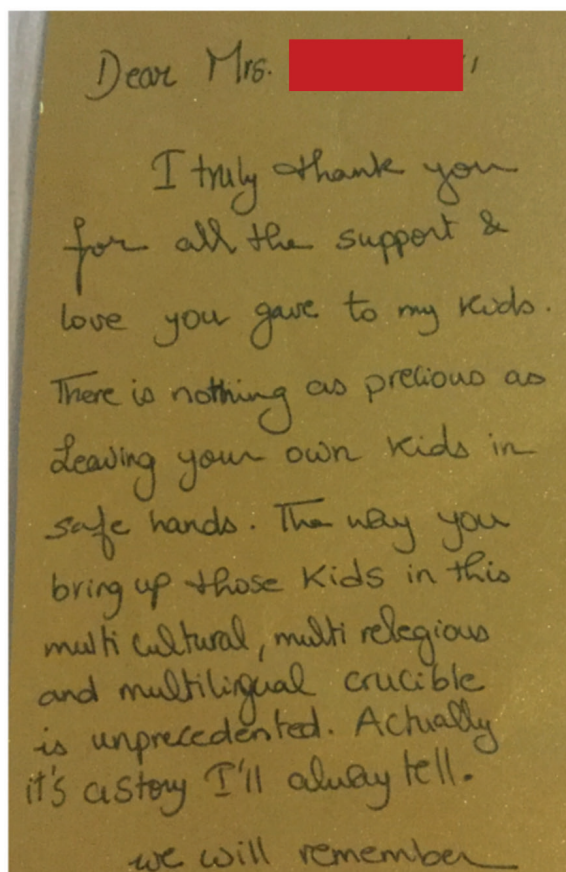 Dear Mrs.
I truly thank you
for all the support &
love you gave to my kids.
There is nothing as precious as
Leaving your own kids in
safe hands. The way you
bring up those kids in this
multi cultural, multi relegious
and multilingual crucible
is unprecedented. Actually
it's a story I'll alway tell.
we will remember